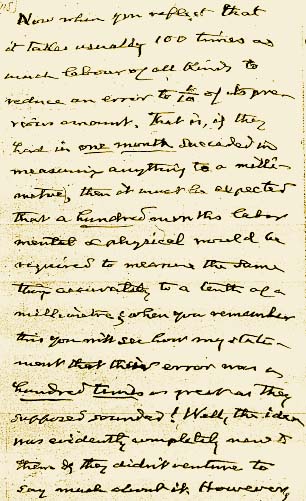 Now when you reflect that
it takes usually 100 times as
much labour of all kinds to
reduce an error to 1/10 of its pre-
vious amount. That is, if they
had in one month succeeded in
measuring anything to a milli-
metre, then it must be expected
that a hundred months labor
mental & physical would be
required to measure the same
thing accurately to a tenth of a
millimetre; when you remember
this you will see how my state-
ment that their error was a
hundred times as great as they
supposed sounded! Well, the idea
was evidently completely new to
them & they didn't venture to
say much about it. However,